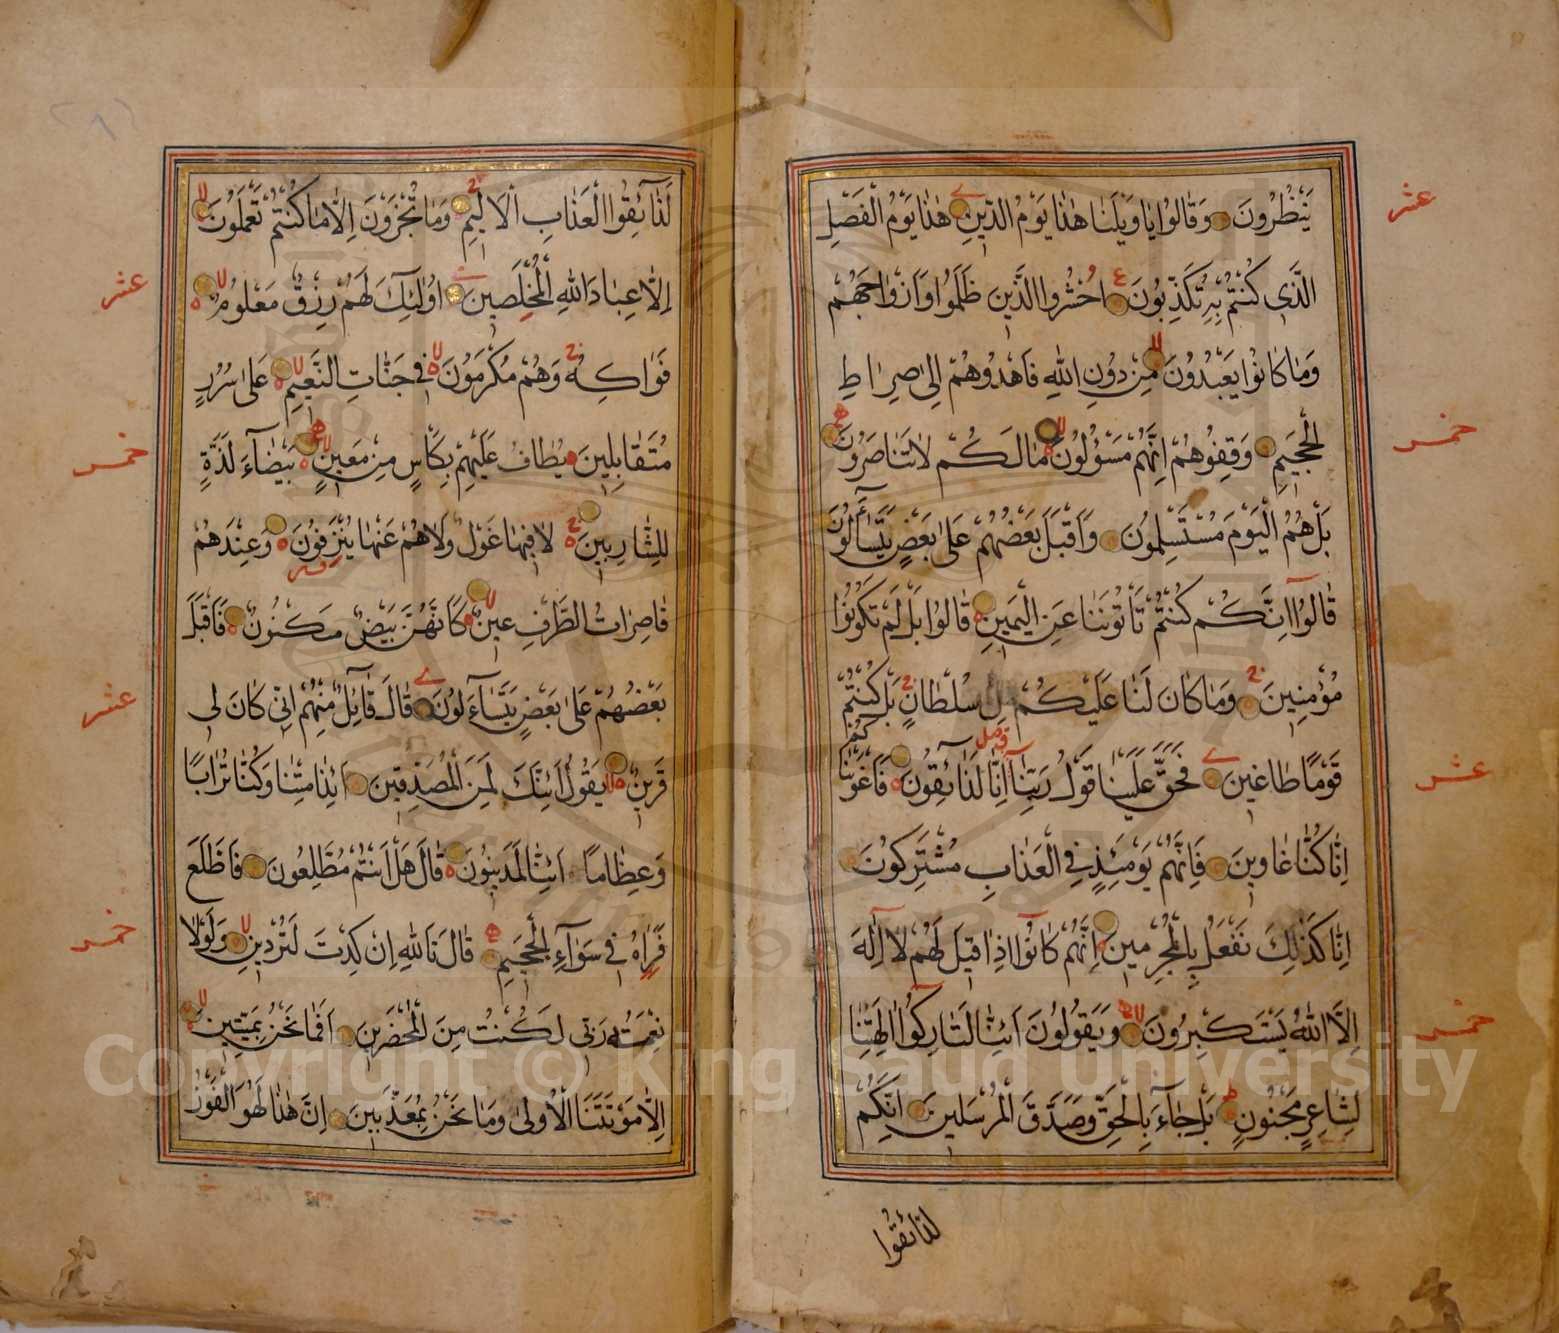 يَنْظُرُونَ وَقَالُوا يَا وَيْلَنَا هٰذَا يَوْمُ الدّ۪ينِ هٰذَا يَوْمُ الْفَصْلِ
الَّذ۪ي كُنْتُمْ بِه۪ تُكَذِّبُونَ اُحْشُرُوا الَّذ۪ينَ ظَلَمُوا وَاَزْوَاجَهُمْ
وَمَا كَانُوا يَعْبُدُونَ مِنْ دُونِ اللّٰهِ فَاهْدُوهُمْ اِلٰى صِرَاطِ
الْجَح۪يمِ وَقِفُوهُمْ اِنَّهُمْ مَسْؤُلُونَ مَا لَكُمْ لَا تَنَاصَرُونَ
بَلْ هُمُ الْيَوْمَ مُسْتَسْلِمُونَ وَاَقْبَلَ بَعْضُهُمْ عَلٰى بَعْضٍ يَتَسَٓاءَلُونَ
قَالُٓوا اِنَّكُمْ كُنْتُمْ تَأْتُونَنَا عَنِ الْيَم۪ينِ قَالُوا بَلْ لَمْ تَكُونُوا
مُؤْمِن۪ينَ وَمَا كَانَ لَنَا عَلَيْكُمْ مِنْ سُلْطَانٍ بَلْ كُنْتُمْ
قَوْمًا طَاغ۪ينَ فَحَقَّ عَلَيْنَا قَوْلُ رَبِّنَٓا اِنَّا لَذَٓائِقُونَ فَاَغْوَيْنَاكُمْ
اِنَّا كُنَّا غَاو۪ينَ فَاِنَّهُمْ يَوْمَئِذٍ فِي الْعَذَابِ مُشْتَرِكُونَ
اِنَّا كَذٰلِكَ نَفْعَلُ بِالْمُجْرِم۪ينَ اِنَّهُمْ كَانُٓوا اِذَا ق۪يلَ لَهُمْ لَٓا اِلٰهَ
اِلَّا اللّٰهُ يَسْتَكْبِرُونَ وَيَقُولُونَ اَئِنَّا لَتَارِكُٓوا اٰلِهَتِنَا
لِشَاعِرٍ مَجْنُونٍ بَلْ جَٓاءَ بِالْحَقِّ وَصَدَّقَ الْمُرْسَل۪ينَ اِنَّكُمْ
لَذَٓائِقُوا
عشر
خمس
عشر
خمس
لَذَٓائِقُوا الْعَذَابِ الْاَل۪يمِ وَمَا تُجْزَوْنَ اِلَّا مَا كُنْتُمْ تَعْمَلُونَ
اِلَّا عِبَادَ اللّٰهِ الْمُخْلَص۪ينَ اُولٰٓئِكَ لَهُمْ رِزْقٌ مَعْلُومٌ
فَوَاكِهُ وَهُمْ مُكْرَمُونَ ف۪ي جَنَّاتِ النَّع۪يمِ عَلٰى سُرُرٍ
مُتَقَابِل۪ينَ يُطَافُ عَلَيْهِمْ بِكَأْسٍ مِنْ مَع۪ينٍ بَيْضَٓاءَ لَذَّةٍ
لِلشَّارِب۪ينَ لَا ف۪يهَا غَوْلٌ وَلَا هُمْ عَنْهَا يُنْزَفُونَ وَعِنْدَهُمْ
قَاصِرَاتُ الطَّرْفِ ع۪ينٌ كَاَنَّهُنَّ بَيْضٌ مَكْنُونٌ فَاَقْبَلَ
بَعْضُهُمْ عَلٰى بَعْضٍ يَتَسَٓاءَلُونَ قَالَ قَٓائِلٌ مِنْهُمْ اِنّ۪ي كَانَ ل۪ي
قَر۪ينٌ يَقُولُ اَئِنَّكَ لَمِنَ الْمُصَدِّق۪ينَ ءَاِذَا مِتْنَا وَكُنَّا تُرَابًا
وَعِظَامًا ءَاِنَّا لَمَد۪ينُونَ قَالَ هَلْ اَنْتُمْ مُطَّلِعُونَ فَاطَّلَعَ
فَرَاٰهُ ف۪ي سَوَٓاءِ الْجَح۪يمِ قَالَ تَاللّٰهِ اِنْ كِدْتَ لَتُرْد۪ينِ وَلَوْلَا
نِعْمَةُ رَبّ۪ي لَكُنْتُ مِنَ الْمُحْضَر۪ينَ اَفَمَا نَحْنُ بِمَيِّت۪ينَ
اِلَّا مَوْتَتَنَا الْاُولٰى وَمَا نَحْنُ بِمُعَذَّب۪ينَ اِنَّ هٰذَا لَهُوَ الْفَوْزُ
عشر
خمس
عشر
خمس
Copyright © King Saud University